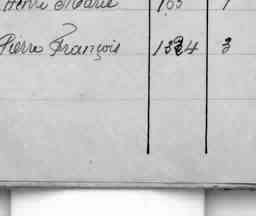 Henri Marie 103 1
Pierre François 1324 3